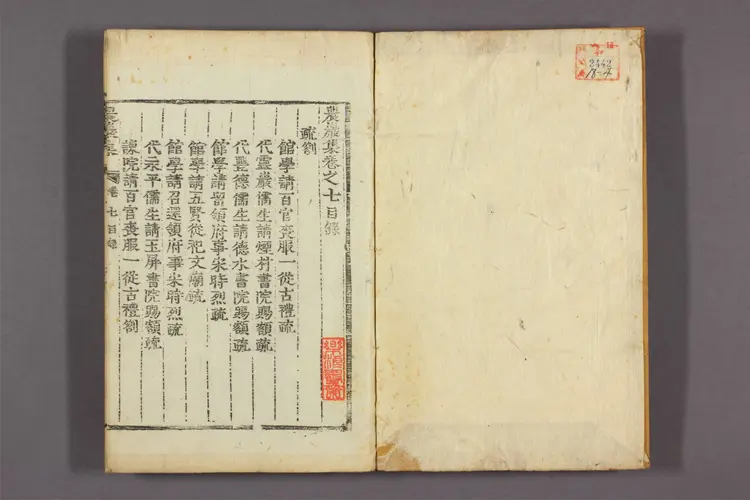 農巖集卷之七目錄
疏劄
館學請百官喪服一從古禮疏
代靈巖儒生請煙村書院賜額疏
代豊德儒生請德水書院賜額疏
館學請留領府事宋時烈疏
館學請五賢從祀文廟疏
館學請召還領府事宋時烈疏
代永平儒生請玉屏書院賜額疏
諫院請百官喪服一從古禮劄
農巖集 卷七 目錄
2442
18-4